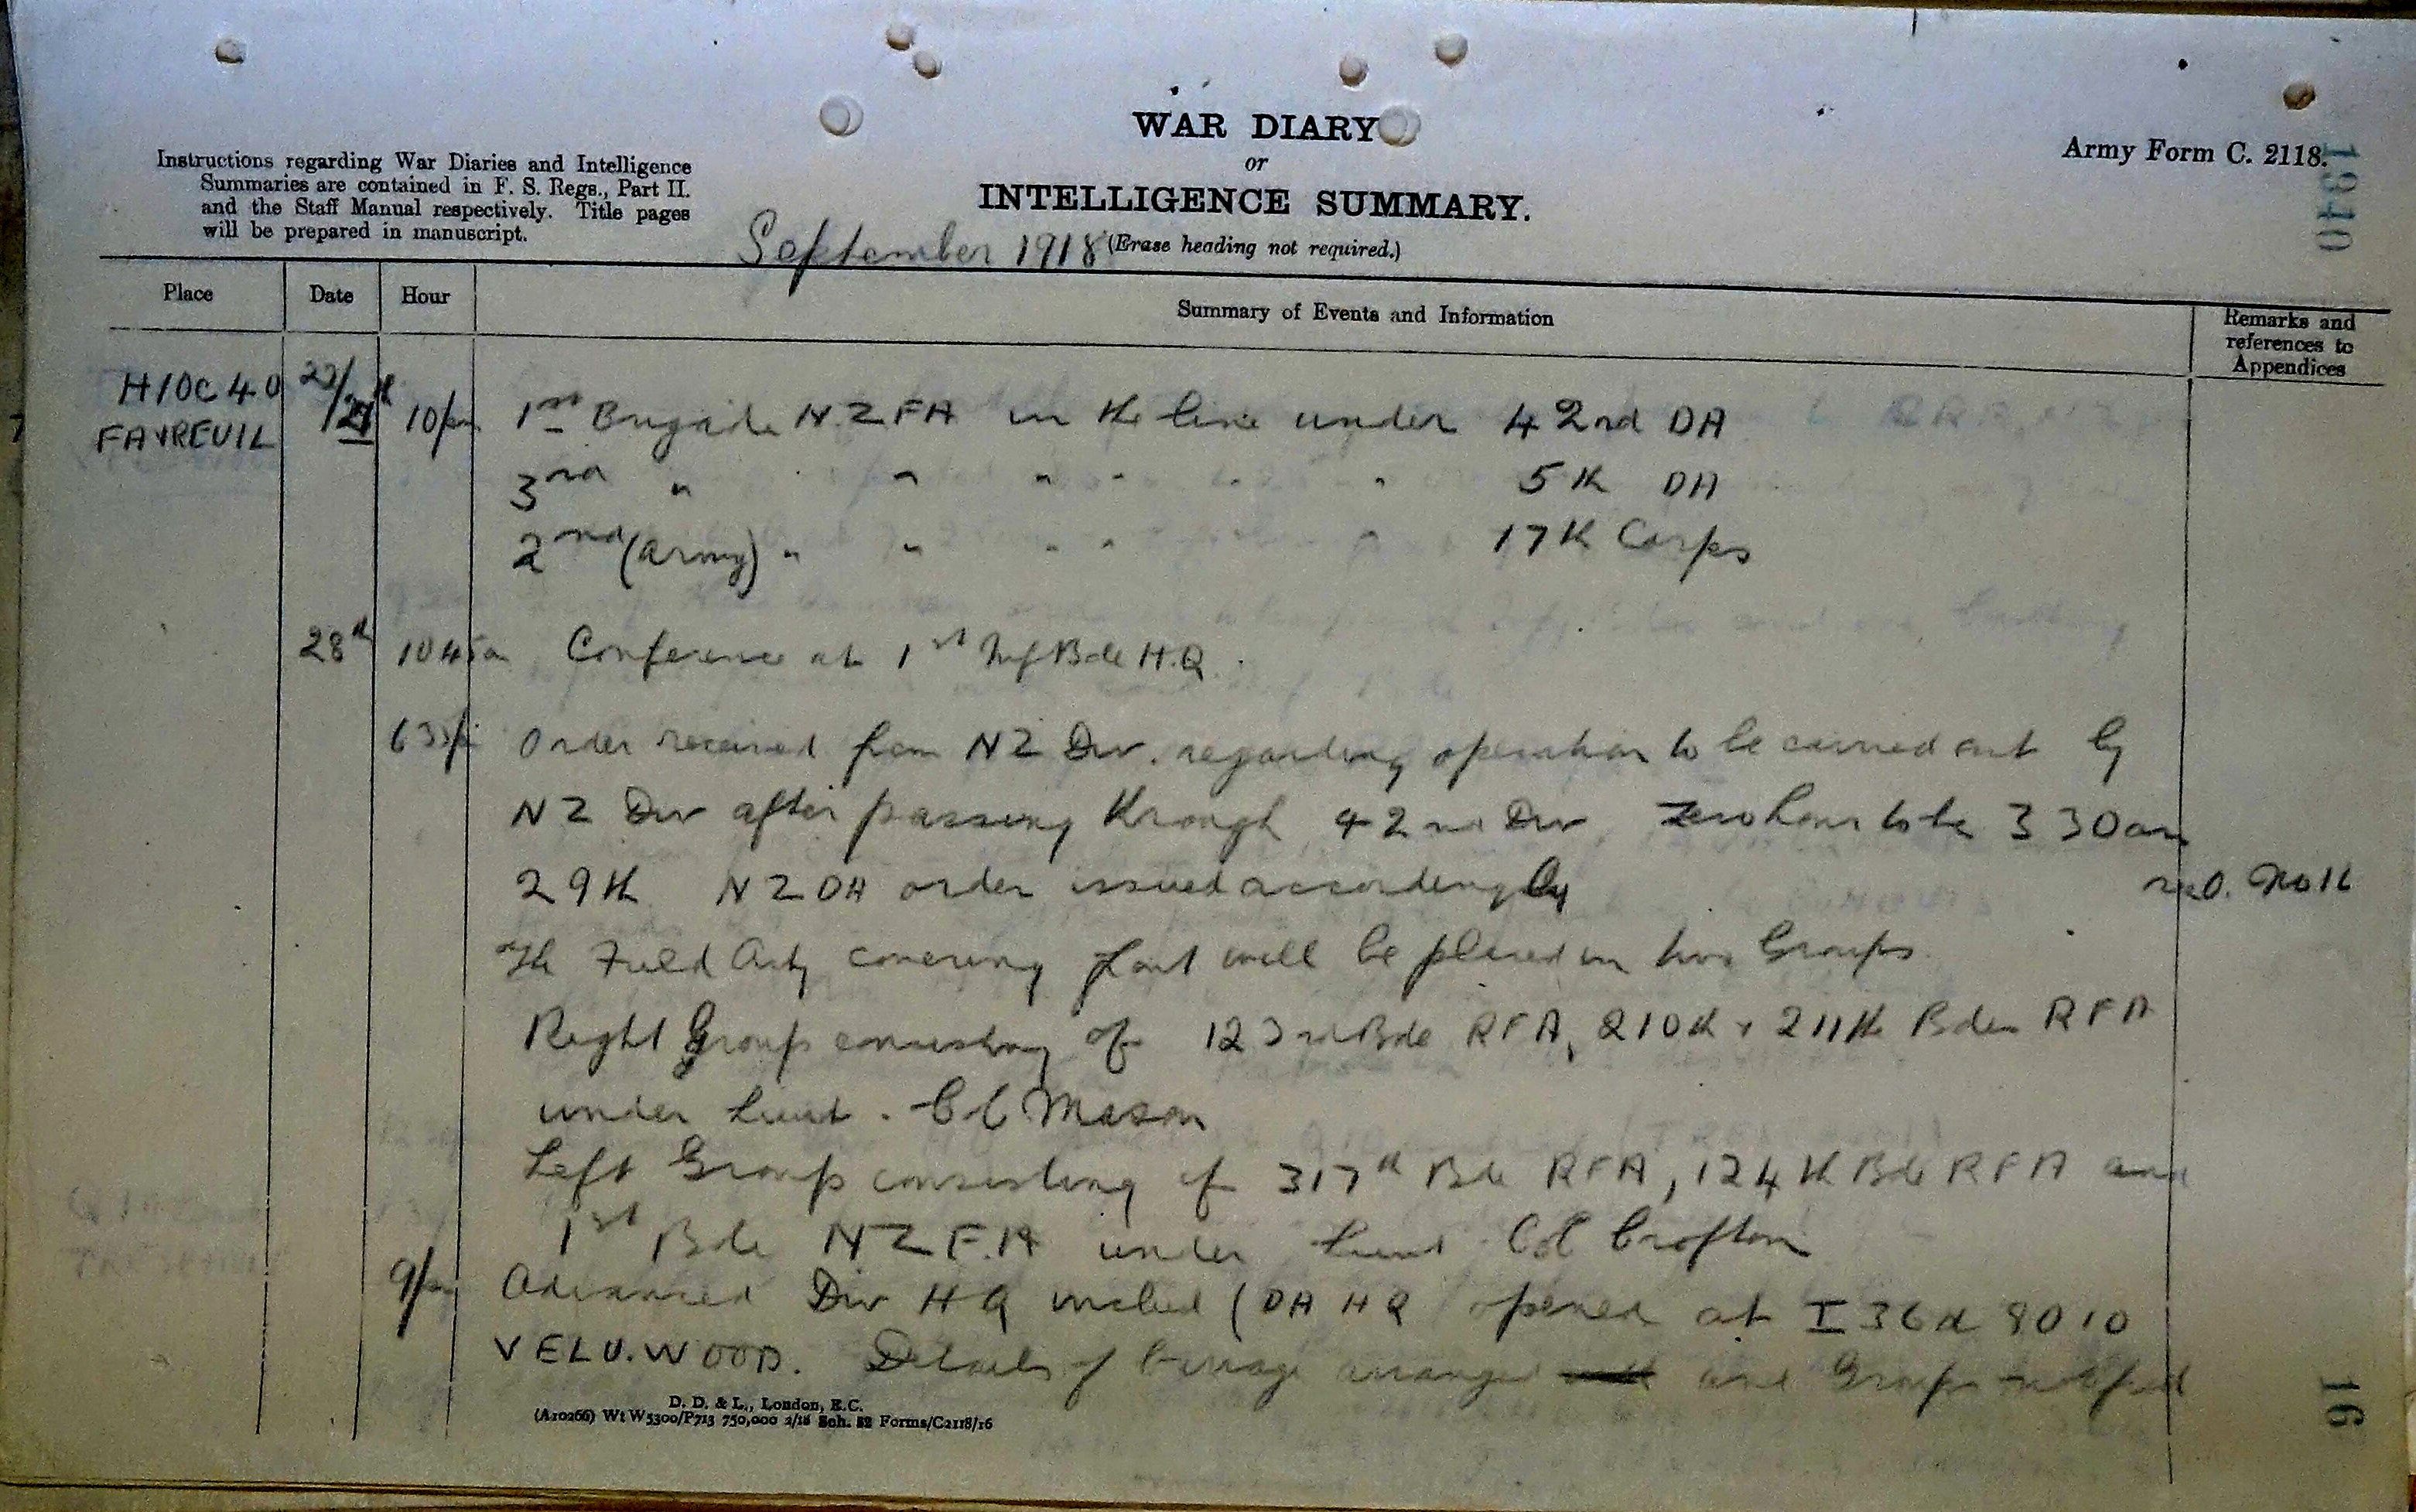 WAR DIARY
or
INTELLIGENCE SUMMARY.
Army Form C. 2118.
Instructions regarding War Diaries and Intelligence
Summaries are contained in F. S. Regs., Part II.
and the Staff Manual respectively. Title pages
will be prepared in manuscript.
September 1918 (Erase heading not required.)
Place Date Hour Summary of Events and Information Remarks and
references to
Appendices
H10C40
FAVREUIL
10pm 1st Brigade N.Z.FA in the line under 42nd DA
3rd " " " " " " 5th DA
2nd (Army) " " " " " 17th Corps
28th 1045am Conference at 1st Inf Bde H.Q.
Order received from NZ Div. regarding operation to be carried out by
NZ Div after passing through 42nd Div Zero hour to be 330am
29th NZDA order issued accordingly
The Field Arty covering front will be placed in two Groups
Right Group consisting of 123rd Bde RFA, 210th + 211th Bdes RFA
under Lieut. Col Mason
Left Group consisting of 317th Bde RFA, 124th Bde RFA and
1st Bde NZF.A under Lieut Col Crofton
9pm Advanced Div HQ (DA HQ opened at I36d 8010
VELU.WOOD. Details of barrage arranged and Groups notified
D. D. & L., London, E.C.
(A10266) Wt W5300/P713 750,000 2/18 Sch. 52 Forms/C2118/16
16